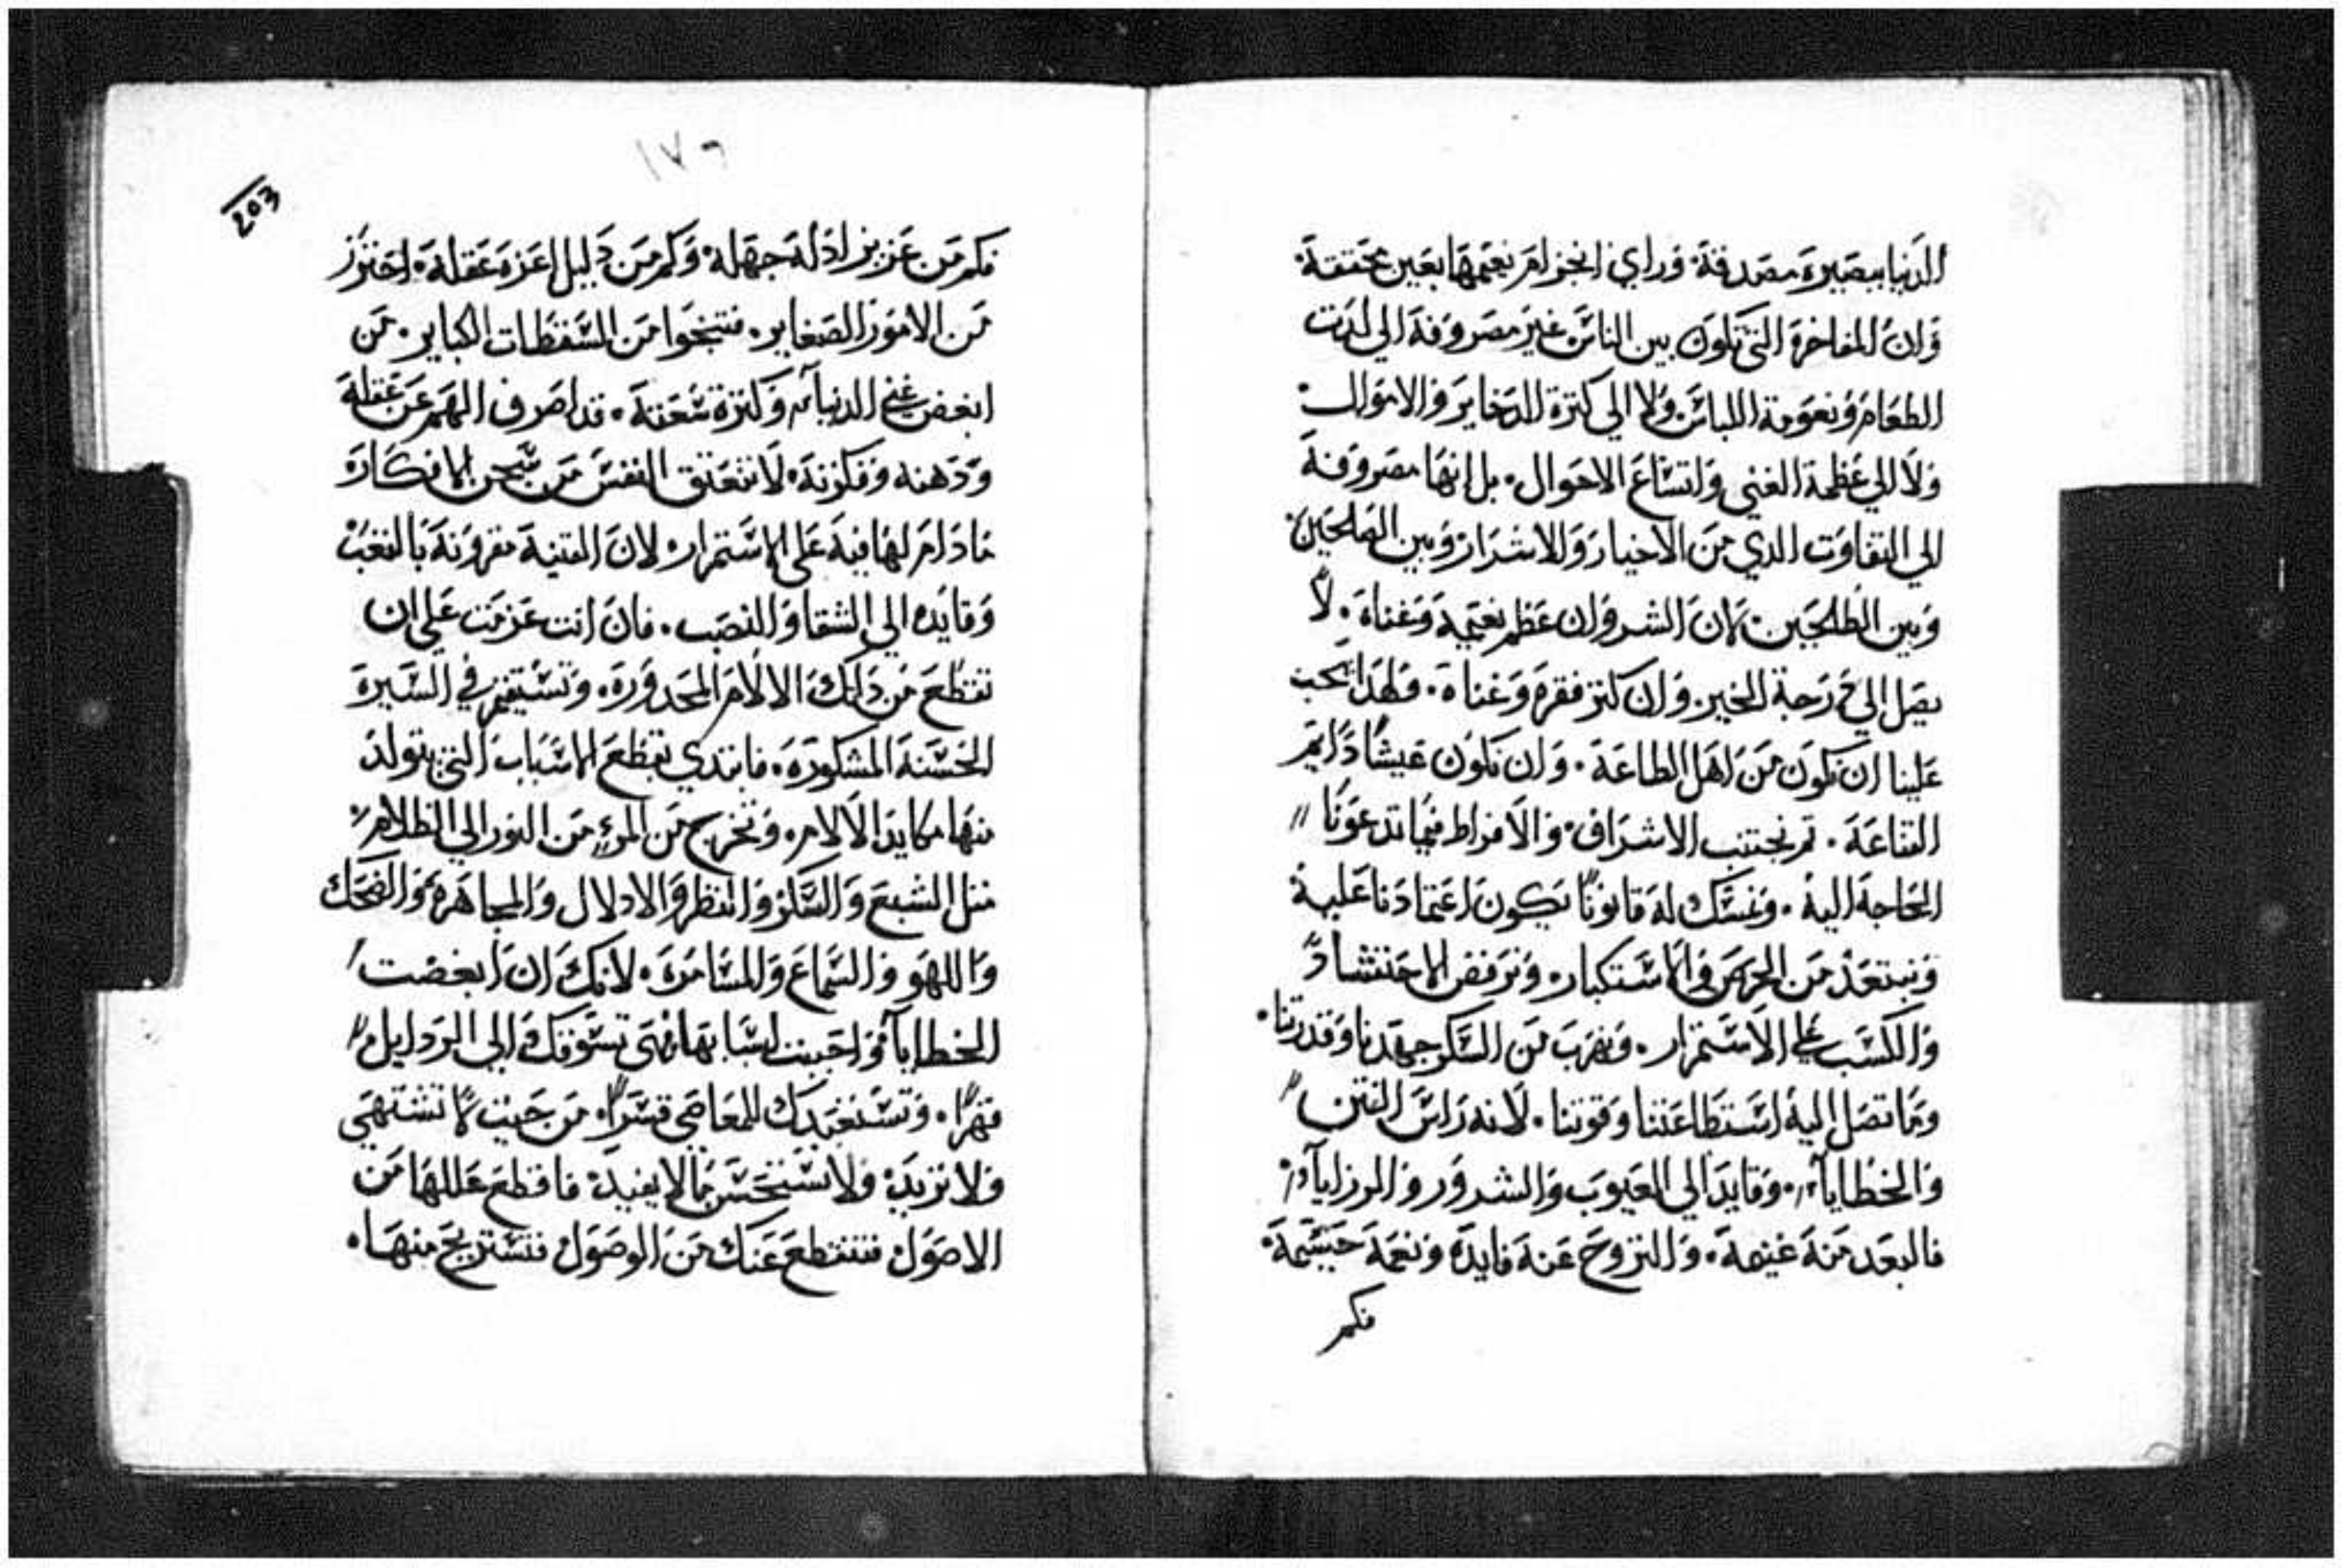 الدنيا ببصيرة مصدقة. وراي انخرام نعيمها بعين محققة.
وان المفاخرة التي تكون بين الناس غير مصروفة الي لدت
الطعام ونعومة اللباس. ولا الي كترة الدخاير والاموال.
ولا الي عظمة الغني واتساع الاحوال. بل انها مصروفة
الي التفاوت الدي من الاخيار والاشرار وبين الصالحين
وبين الطالحين. لان الشر وان عظم نعيمه وغناه. لا
يصل الي درجة الخير. وان كتر فقره وعناه. فلهدا يجب
علينا ان نكون من اهل الطاعة. وان نكون عيشا دايم
القناعة. تم نجتنب الاشراف. والافراط فيما تدعونا
الحاجة اليه. ونمسك له قانونا يكون اعتمادنا عليه
ونبتعد من الحرص في الاستكبار. ونرفض الاحتشاد
والكسب علي الاستمرار. ونهرب من السكر جهدنا وقدرتنا.
وما تصل اليه استطاعتنا وقوتنا. لانه راس الفتن
والخطايا. وقايد الي العيوب والشرور والرزايا.
فالبعد منه غنيمة. والنزوح عنه فايده ونعمة جسيمة.
فكم
١٧٦
203
فكم من عزيز ادله جهله. وكم من دليل اعزه عقله. احترز
من الامور الصغاير. فتنجوا من السقطات الكباير. من
ابغض غني الدنيا وكترة سعته. قد اصرف الهم عن عقله
ودهنه وفكرته. لا تنعتق النفس من سجن الافكار
ما دام لها فيه علي الاستمرار. لان القنية مقرونة بالتعب
وقايده الي الشقا والنصب. فان انت عزمت علي ان
تقطع من داتك الالام المحدورة. وتستقيم في السيرة
الحسنة المشكورة. فابتدي بقطع الاسباب التي يتولد
منها مكايد الالام. وتخرج من المرء من النور الي الظلام.
متل الشبع والسكر والنظر والادلال والمجاهرة والضحك
واللهو والسماع والمسامرة. لانك ان ابغضت
الخطايا واحببت اسبابها فهي تسوقك الي الردايل
قهرا. وتستعبدك للمعاصي قسرا. من حيت لا تشتهي
ولا تريد. ولا تستحسن ما لا يفيد. فاقطع عللها من
الاصول فتنقطع عنك من الوصول فتستريح منها.